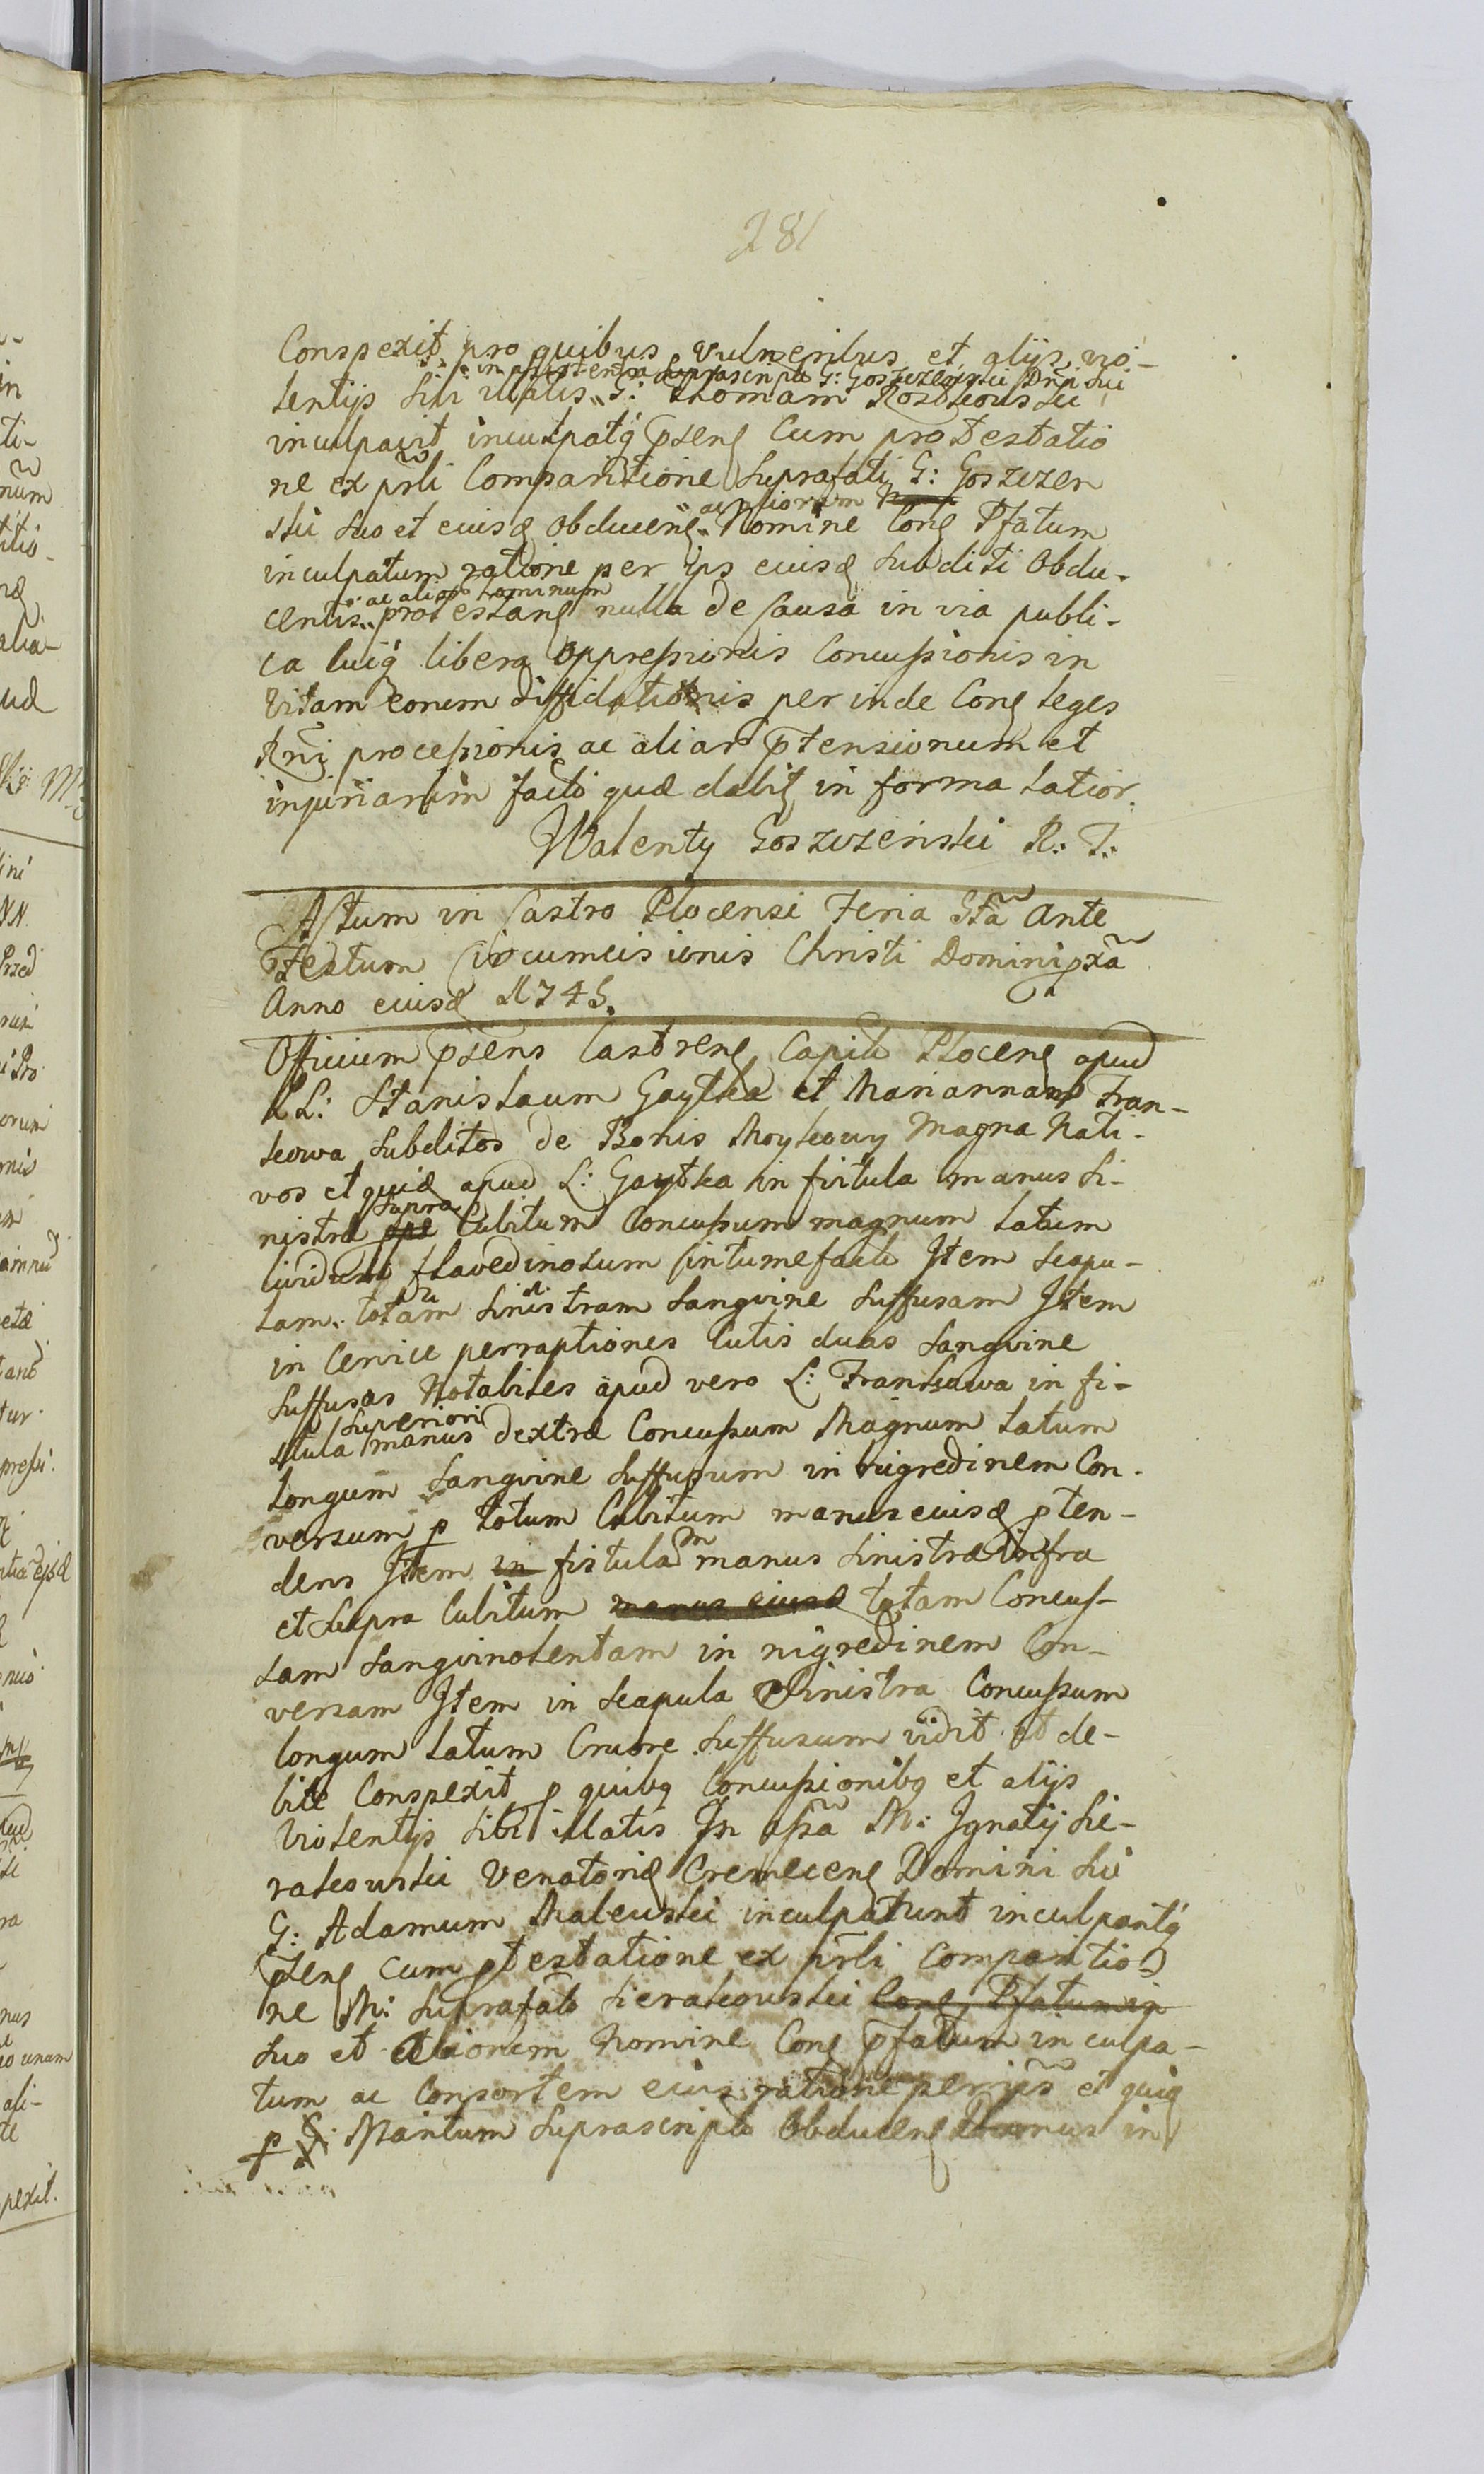 281
Conspexit pro quibus vulneribus et alijs vio-
in assistentia suprascripti G: Goszczeński Dñi sui
lentijs sibi illatis G: Thomam Rostkowski
inculpavit inculpatq pñtens Cum protestatio
ne ex prñli Comparitione suprafati G: Goszczen
ski suo et eiusd obducens ac aliorum Nomine Cons Pfatum
inculpatum ratione per ips eiusd subditi Obdu-
centis ac alior hominum protestans nulla de Causa in via publi-
ca luiq libera oppressionis Concussionis in
Vitam eorum diffidationis per inde Cons leges
Rñi processionis ac aliar ptensionum et
injuriarum facto quæ dabit in forma latior.
Walenty Goszczeński R: T:
Actum in Castro Plocensi Feria Stã Ante
Festum Circumcisionis Christi Domini pxã
Anno eiusd 1745.
Officium psens Castrens Capitt Plocens apud
LL: Stanislaum Gaytka et Mariannam Fran-
kowa subditos de Bonis Moykowy Magna Nati-
vos et quid apud L: Gaytka in fistula manus si-
nistræ supra Cubitum Concussum magnum latum
lividum flavedinosum intumefactt Item scapu-
lam totam sinistram sangvine suffusam Item
in Cervice perraptiones Cutis duas sangvine
suffusas Notabiles apud vero L: Frankowa in fi-
stula superiori manus dextræ Concussum Magnum latum
longum sangvine suffusum in nigredinem Con-
versum p totum Cubitum manus eiusd pten-
dens Item in fistulam manus sinistræ infra
et supra Cubitum manus eiusd totam Concus-
sam sangvinolentam in nigredinem Con-
versam Item in scapula sinistra Concussum
longum latum Cruore suffusum vidit et de-
bite Conspexit p quibq Concussionibq et alijs
Violentijs sibi illatis In assã M: Ignatij Sie-
rakowski Venatorid Cremecens Domini sui
G: Adamum Makowski inculpatunt inculpantq
psens cum ptestatione ex prñli Comparitio-
ne M: suprafatt Sierakowski Cons Pfatum in
suo et aliorum Nomine Cons pfatum in culpa-
tum ac Consortem eius ratione per ips et quid
p G: Maritum suprascriptt Obducens in